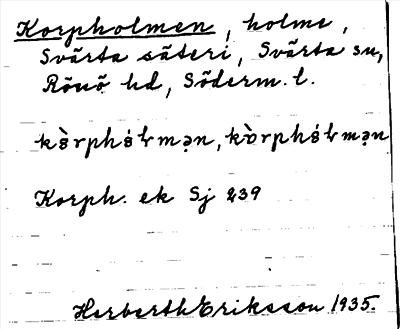 Korpholmen, holme,
Svärta säteri, Svärta sn,
Rönö hd, Söderm. l.
Korph. ek Sj 239
Herberth Eriksson 1935.